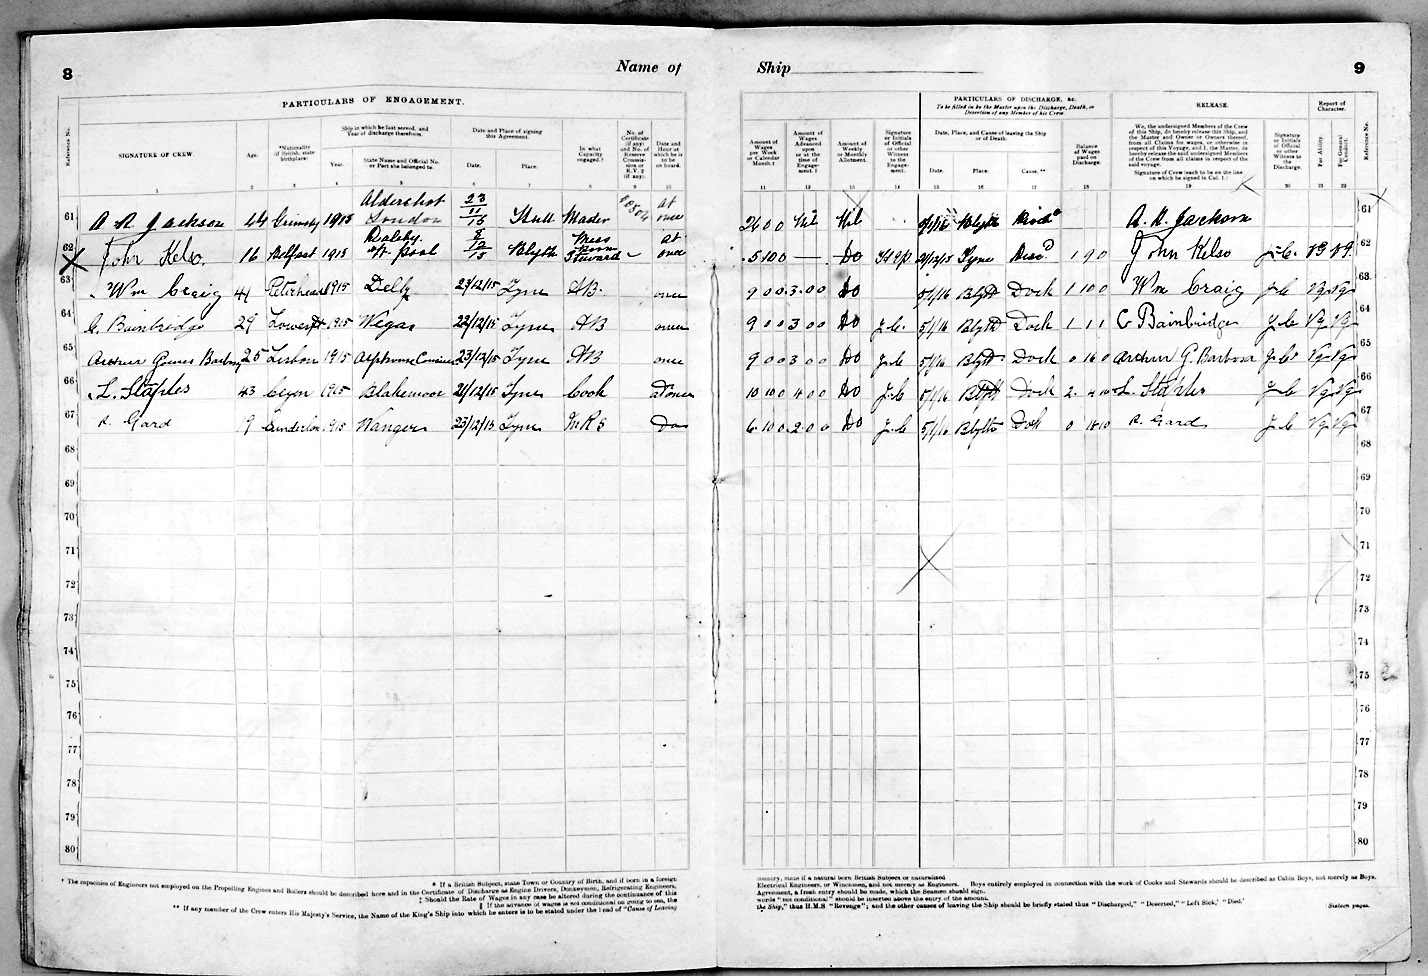 8
Name of
PARTICULARS OF ENGAGEMENT.
Reference No.
SIGNATURE OF CREW.
Age.
*Nationality (if British, state birthplace).
Ship in which he last served, and Year of discharge therefrom.
Year.
State Name and Official No. or Port she belonged to.
Date and Place of signing this Agreement.
Date.
Place.
In what Capacity engaged.†
No. of Certificate (if any) and No. of Reserve Commission or R.V.2 (if any).
Date and Hour at which he is to be on board.
1 2 3 4 5 6 7 8 9 10
61 A R Jackson 44 Grimsby 1915 Aldershot London 23/11/15 Hull Master at once
62 X John Kelso. 16 Belfast 1915 H'pool 8/12/15 Blyth Mess Room Steward at once
63 Wm Craig 41 Peterhead 1915 23/12/15 Tyne AB once
64 C. Bainbridge 29 Lowestoft 1915 Wegas 22/12/15 Tyne AB once
65 Arthur Gomes Barbosa 25 Lisbon 1915 23/12/15 Tyne AB once
66 L. Staples 43 1915 Blakemoor 21/12/15 Tyne Cook at once
67 R. Gard 19 Sunderland 1915 23/12/15 Tyne M R S Do
68
69
70
71
72
73
74
75
76
77
78
79
80
† The capacities of Engineers not employed on the Propelling Engines and Boilers should be described here and in the Certificate of Discharge as Engine Drivers, Donkeymen, Refrigerating Engineers,
* If a British Subject, state Town or Country of Birth, and if born in a foreign
‡ Should the Rate of Wages in any case be altered during the continuance of this
§ If the advance of wages is not conditional on going to sea, the
** If any member of the Crew enters His Majesty's Service, the Name of the King's Ship into which he enters is to be stated under the head of "Cause of Leaving
Ship
9
PARTICULARS OF DISCHARGE, &c.
To be filled in by the Master upon the Discharge, Death, or Desertion of any Member of his Crew.
RELEASE.
Report of Character.
Amount of Wages per Week or Calendar Month.‡
Amount of Wages Advanced upon or at the time of Engagement.§
Amount of Weekly or Monthly Allotment.
Signature or Initials of Official or other Witness to the Engagement.
Date, Place, and Cause of leaving the Ship or of Death.
Date.
Place.
Cause.**
Balance of Wages paid on Discharge.
We, the undersigned Members of the Crew of this Ship, do hereby release this Ship, and the Master and Owner or Owners thereof, from all Claims for wages, or otherwise in respect of this Voyage, and I, the Master, do hereby release the said undersigned Members of the Crew from all claims in respect of the said voyage.
Signature of Crew (each to be on the line on which he signed in Col. 1.)
Signature or Initials of Official or other Witness to the Discharge.
For Ability.
For General Conduct.
Reference No.
11 12 13 14 15 16 17 18 19 20 21 22
26 0 0 Nil Nil Blyth A. R. Jackson 61
5 10 0 — Do Tyne Disc'd 1 9 0 John Kelso J.C. VG VG. 62
9 0 0 3 0 0 Do 5/1/16 Blyth Dock 1 10 0 Wm Craig J C Vg Vg 63
9 0 0 3 0 0 Do J.C. 5/1/16 Blyth Dock 1 1 1 C Bainbridge J C Vg Vg 64
9 0 0 3 0 0 Do J.C. 5/1/16 Blyth Dock 0 16 0 Arthur G. Barbosa J C Vg Vg 65
10 10 0 4 0 0 Do J.C 5/1/16 Blyth Dock 2 4 10 L. Staples J C Vg Vg 66
6 10 0 2 0 0 Do J.C 5/1/16 Blyth Dock 0 18 10 R. Gard J C Vg Vg 67
68
69
70
71
72
73
74
75
76
77
78
79
80
country, state if a natural born British Subject or naturalized
Electrical Engineers, or Winchmen, and not merely as Engineers. Boys entirely employed in connection with the work of Cooks and Stewards should be described as Cabin Boys, not merely as Boys.
Agreement, a fresh entry should be made, which the Seamen should sign.
words "not conditional" should be inserted above the entry of the amount.
the Ship," thus H.M.S "Revenge"; and the other causes of leaving the Ship should be briefly stated thus "Discharged," "Deserted," "Left Sick,' "Died.'
Sixteen pages.